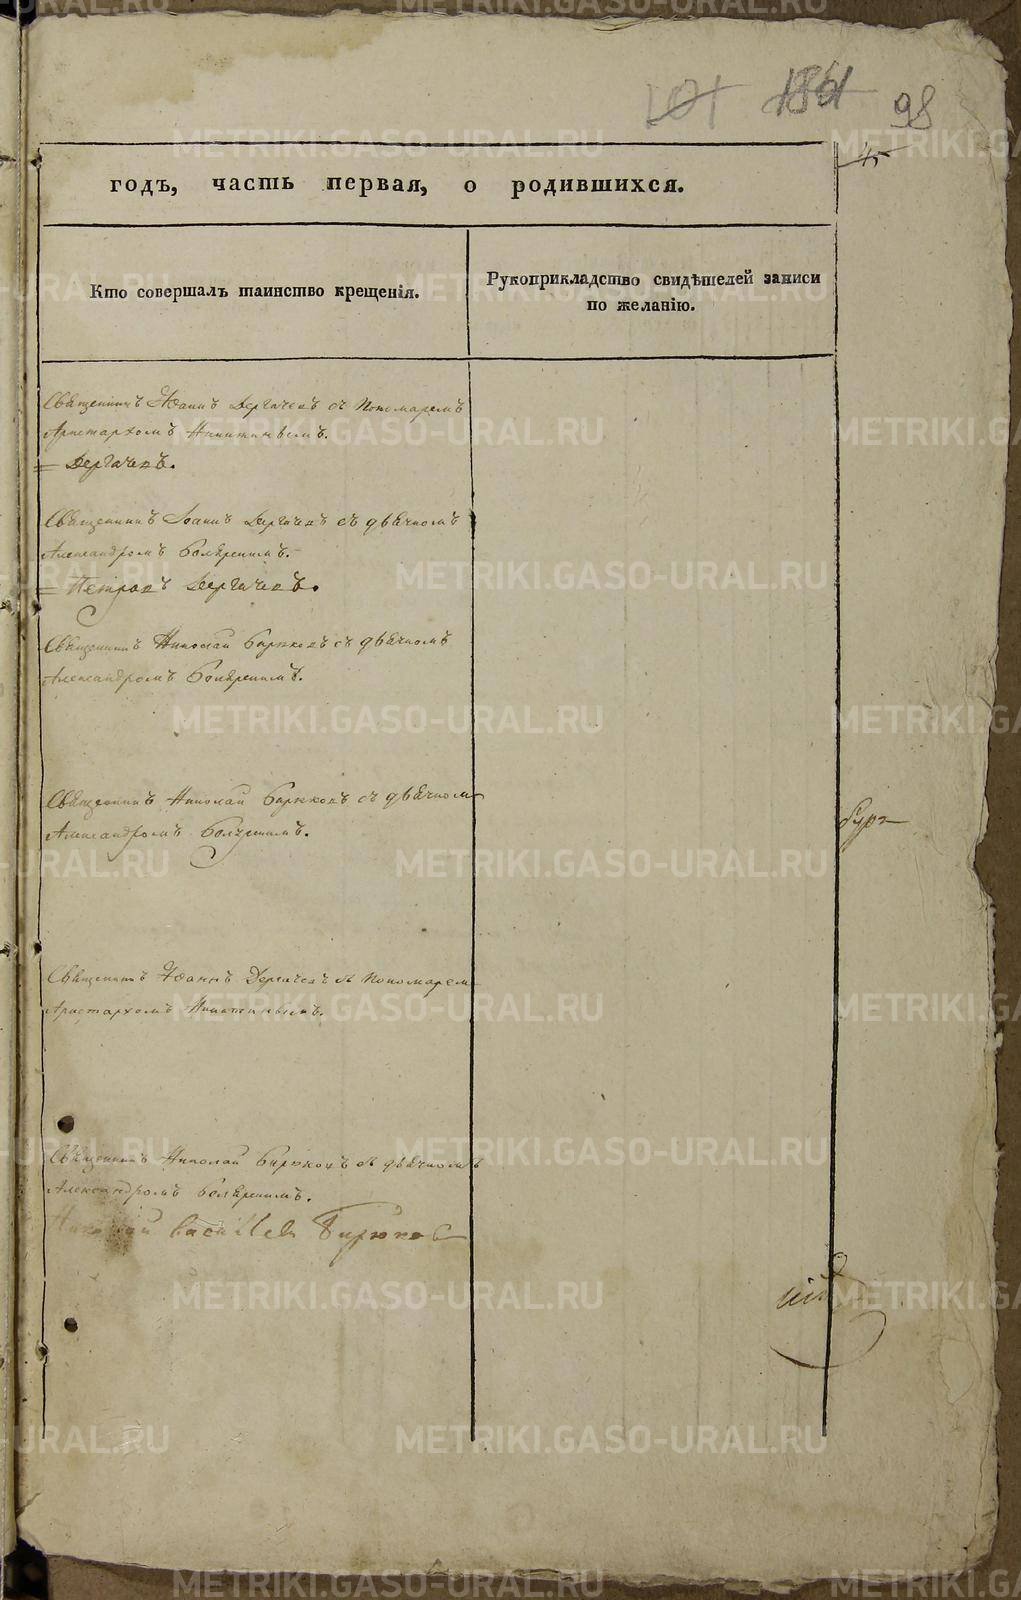 101 181 98
45
годъ, часть первая, о родившихся.
Кто совершалъ таинство крещенія.
Рукоприкладство свидѣтелей записи
по желанію.
Священникъ Іоаннъ Дергачевъ съ пономаремъ
Аристархомъ Никитинымъ.
Дергачевъ.
Священникъ Іоаннъ Дергачевъ съ дьячкомъ
Александромъ
Петровъ Дергачевъ.
Священникъ Николай Бирюковъ съ дьячкомъ
Александромъ
Священникъ Николай Бирюковъ съ дьячком
Александромъ
Священникъ Іоаннъ Дергачевъ съ пономарем
Аристархомъ Никитинымъ.
Священникъ Николай Бирюковъ съ дьячкомъ
Александромъ
Николай Бирюков
METRIKI.GASO-URAL.RU